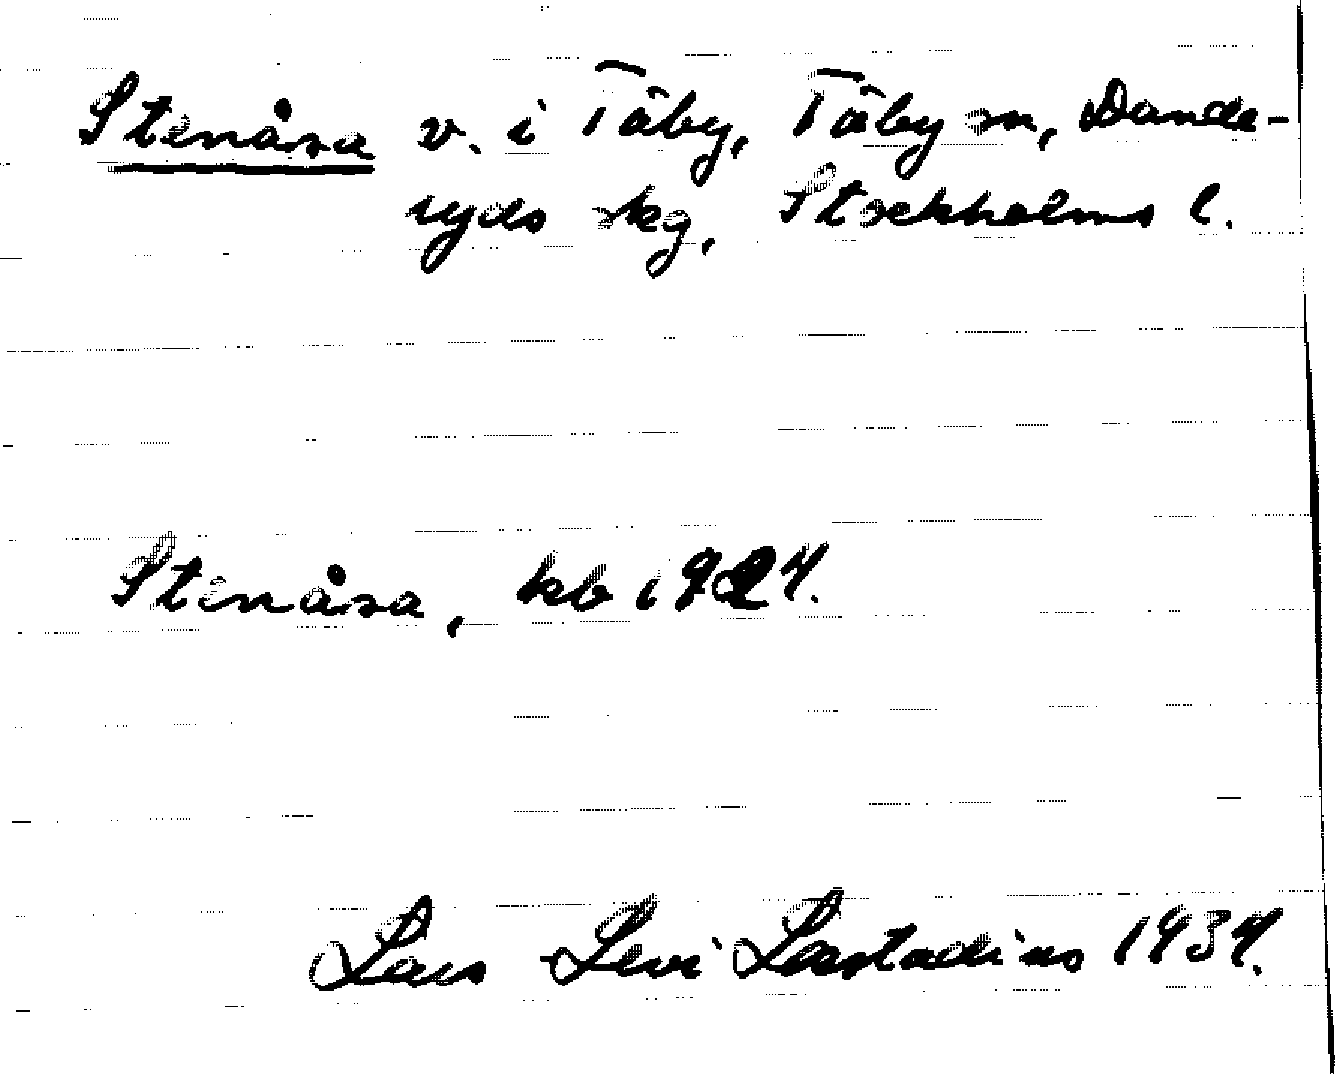 Stenåsa v. i Täby, Täby sn, Dande-
ryds skg, Stockholms l.
Stenåsa, kb 1924.
Lars Levi Læstadius 1934.